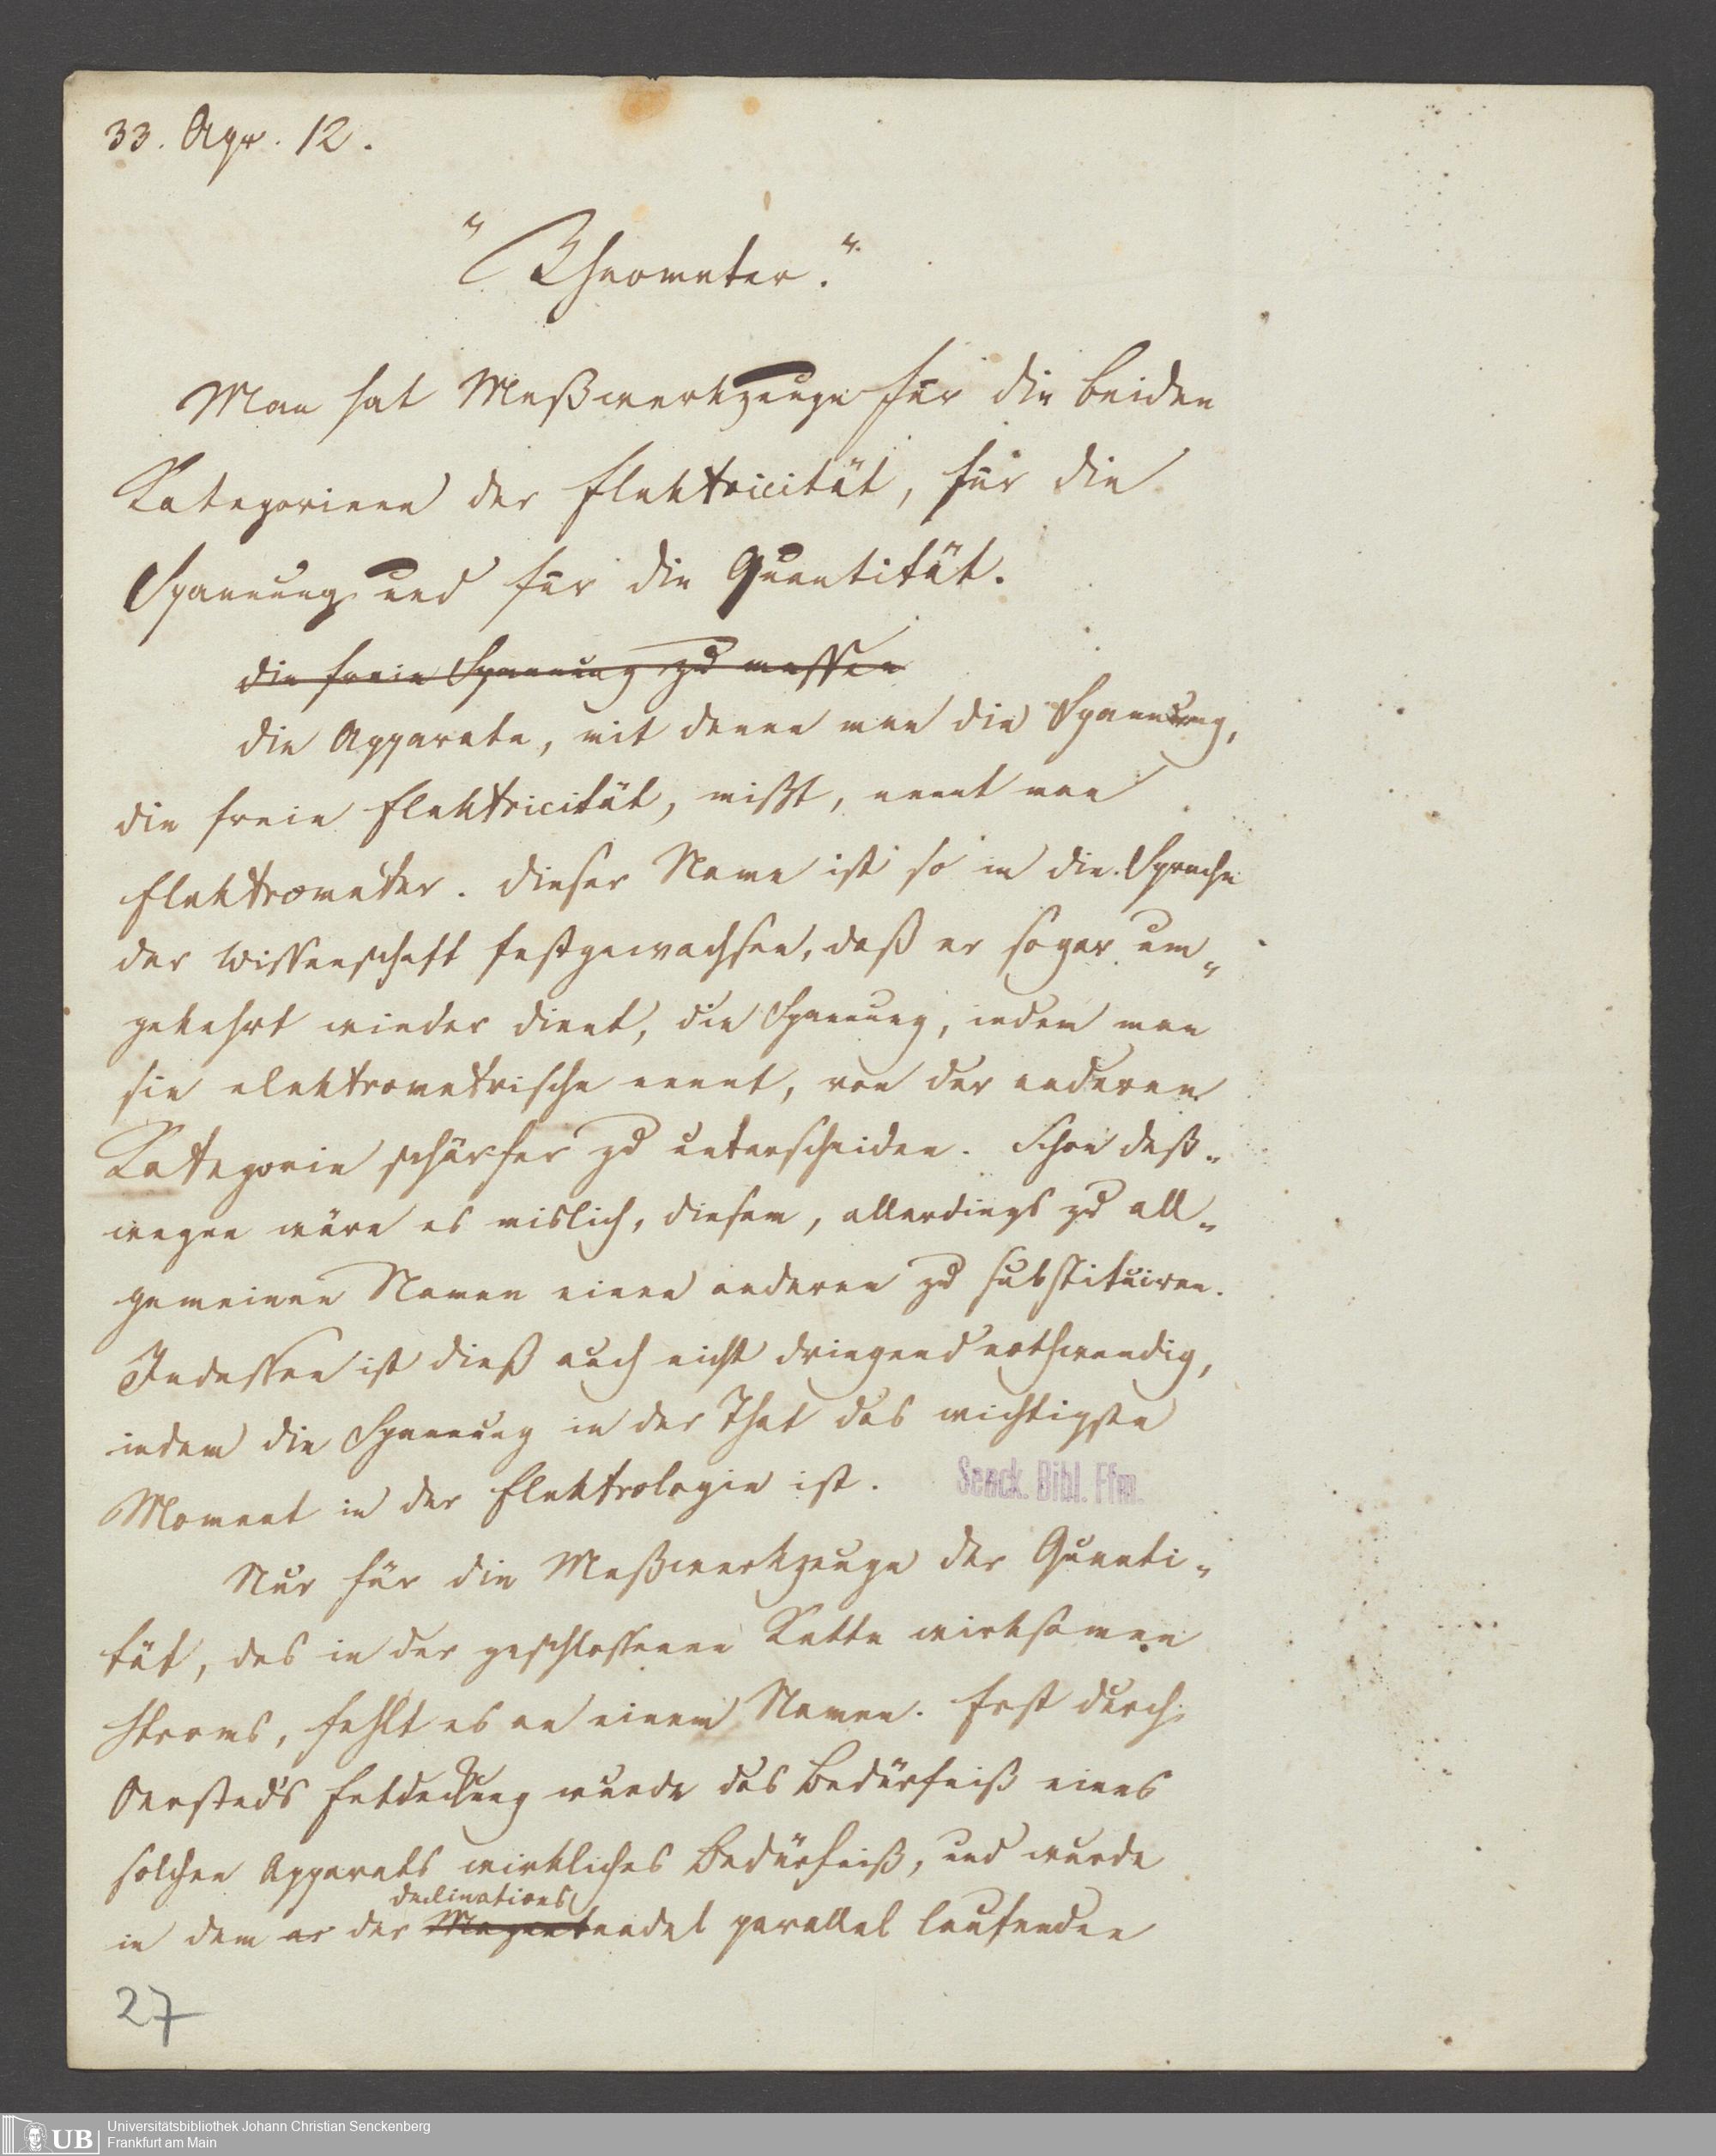 33. Apr. 12.
"Rheometer."
Man hat Meßwerkzeuge für die beiden
Kategorieen der Elektricität, für die
Spannung und für die Quantität.
die freie Spannung zu messen
die Apparate, mit denen man die Spannung,
die freie Elektricität, mißt, nennt man
Elektrometer. Dieser Name ist so in die Sprache
der Wissenschaft festgewachsen, daß er sogar um„
gekehrt wieder dient, die Spannung, indem man
sie elektrometrische nennt, von der anderen
Kategorie schärfer zu unterscheiden. Schon deß„
wegen wäre es mislich, diesem, allerdings zu all„
gemeinen Namen einen anderen zu substituiren.
Indessen ist dieß auch nicht dringend nothwendig,
indem die Spannung in der That das wichtigste
Moment in der Elektrologie ist.
Senck. Bibl. Ffm.
Nur für die Meßwerkzeuge der Quanti„
tät, des in der geschlossenen Kette wirksamen
Stroms, fehlt es an einem Namen. Erst durch
Oersteds Entdeckung wurde das Bedürfniß eines
solchen Apparats wirkliches Bedürfniß, und wurde
declinations
in dem er der Magnetnadel parallel laufenden
27
UB
Universitätsbibliothek Johann Christian Senckenberg
Frankfurt am Main